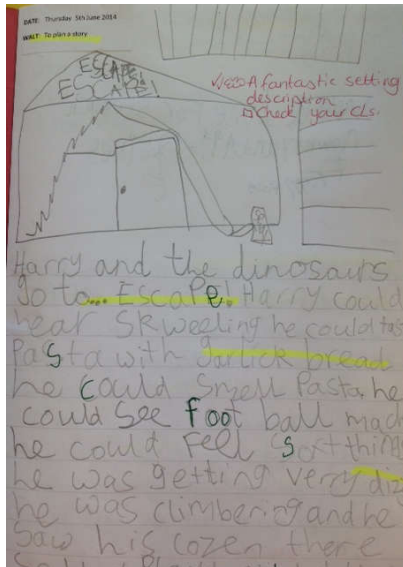 DATE: Thursday 5th June 2014
WALT: To plan a story
ESCAPE!
ESCAPE!
✓WOO A fantastic setting
description
Check your cls.
Harry and the dinosaurs
go to... Escape! Harry could
hear SKweeling he could tast
Pasta with garlick bread
he could Smell Pasta. he
could See foot ball mad
he could Feel Soft thing
he was getting verry dizy
he was climbering and he
Saw his cozen there